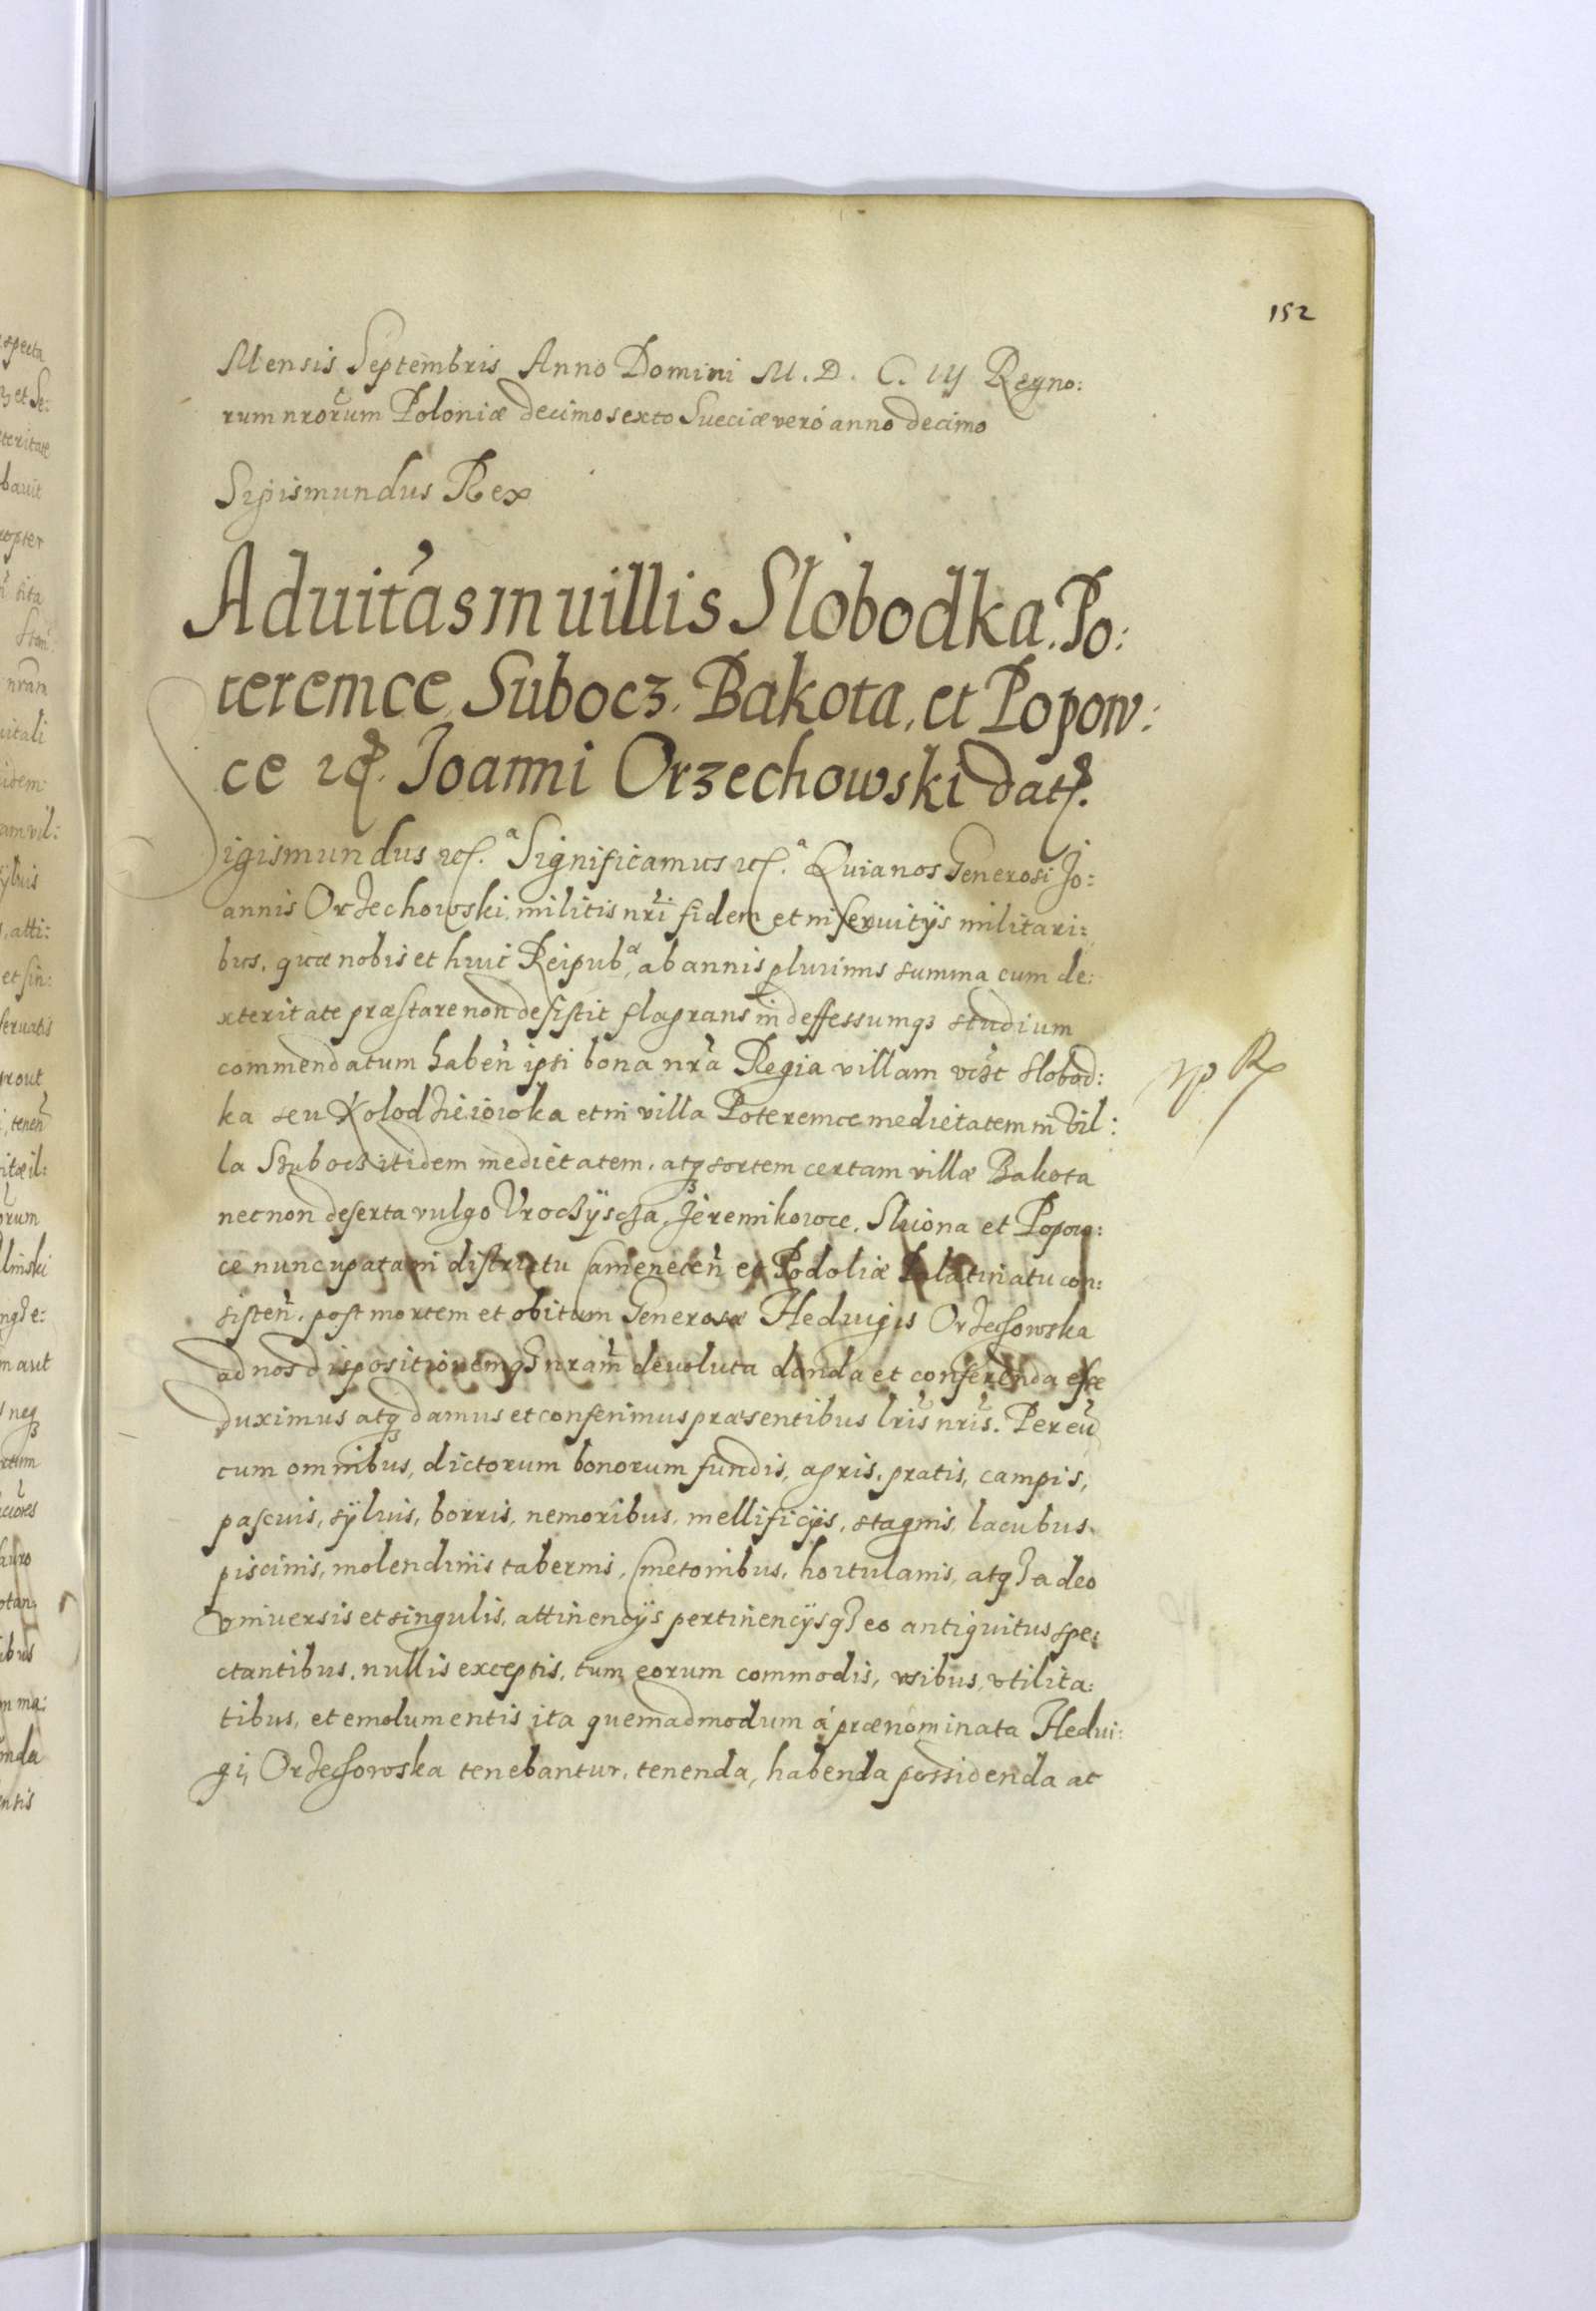 152
Mensis Septembris Anno Domini M. D. C. IIJ Regno:
rum nrorum Poloniæ decimosexto Sueciæ veró anno decimo
Sigismundus Rex
Aduitas in uillis Slobodka. Po:
teremce Subocz. Bakota, et Popow:
ce etc. Joanni Orzechowski dat.
Sigismundus etc. Significamus etc. Quia nos Generosi Jo:
annis Orzechowski militis nri fidem et in seruitijs militari:
bus, quæ nobis et huic Reipub. ab annis plurimis summa cum de:
xteritate præstare non desistit flagrans indeffessumq3 studium
commendatum haben ipsi bona nra Regia villam Slobod:
ka seu et in villa Poteremce medietatem in vil:
la Szubocz itidem medietatem, atq3 sortem certam villæ Bakota
nec non deserta vulgo Vroczÿscza, Jeremikowce, Sluona et Popow:
ce nuncupata in districtu Camenecen et Podoliæ Palatinatu con:
sisten. post mortem et obitum Generosæ Heduigis Orzechowska
ad nos dispositionemq3 nram deuoluta danda et conferenda esse
duximus atq3 damus et conferimus præsentibus lris nris. Per eu
cum omnibus, dictorum bonorum fundis, agris, pratis, campis,
pascuis, sÿluis, borris, nemoribus, mellificijs, stagnis, lacubus,
piscinis, molendinis tabernis, Cmetonibus, hortulanis, atq3 adeo
vniuersis et singulis, attinencijs pertinencijsq3 eo antiquitus spe:
ctantibus, nullis exceptis, tum eorum commodis, vsibus, vtilita:
tibus, et emolumentis ita quemadmodum á prænominata Hedui:
gi, Orzechowska tenebantur, tenenda, habenda possidenda ac